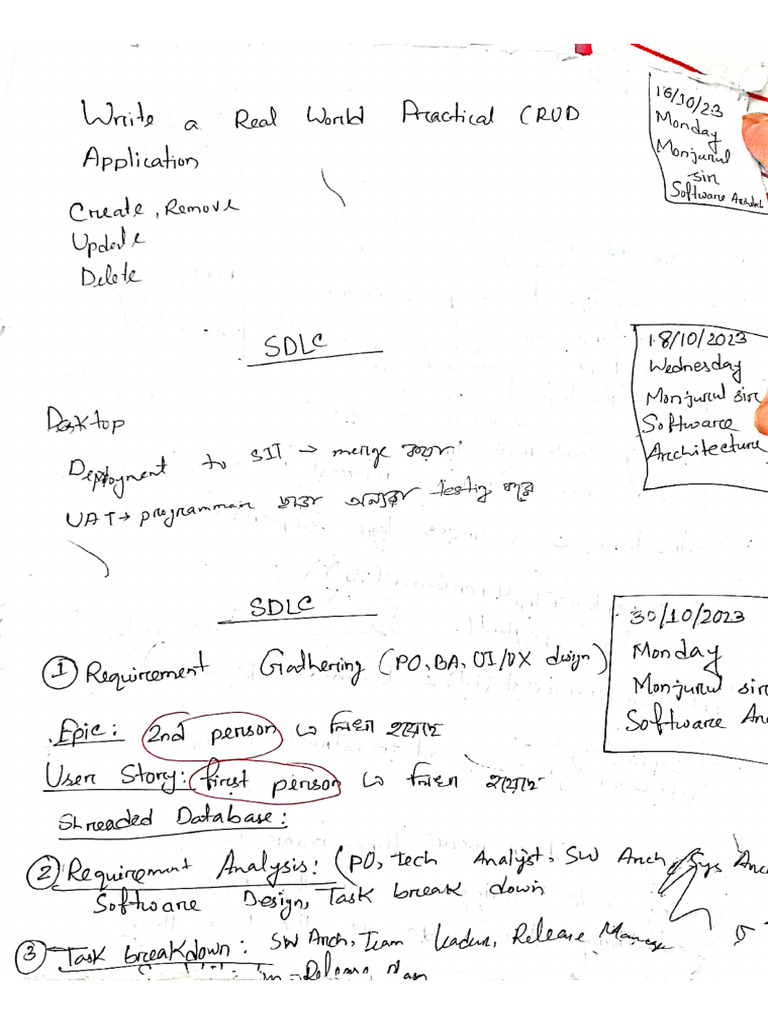 Write a Real World Practical CRUD
Application
16/10/23
Monday
Monjurul
sir
Software
Create, Remove
Update
Delete
SDLC
18/10/2023
Wednesday
Monjurul sir
Software
Architecture
Desktop
Deployment to SIT → merge করা
UAT → programmar ছাড়া অন্যরা testing করে
SDLC
30/10/2023
Monday
Monjurul sir
Software
① Requirement Gathering (PO, BA, UI/UX design)
Epic: 2nd person এ লিখা হয়েছে
User Story: first person এ লিখা হয়েছে
Shreaded Database:
② Requirement Analysis: (PO, tech Analyst, SW Arch, Sys
Software Design, Task break down
③ Task breakdown: SW Arch, Team Leader, Release Manager